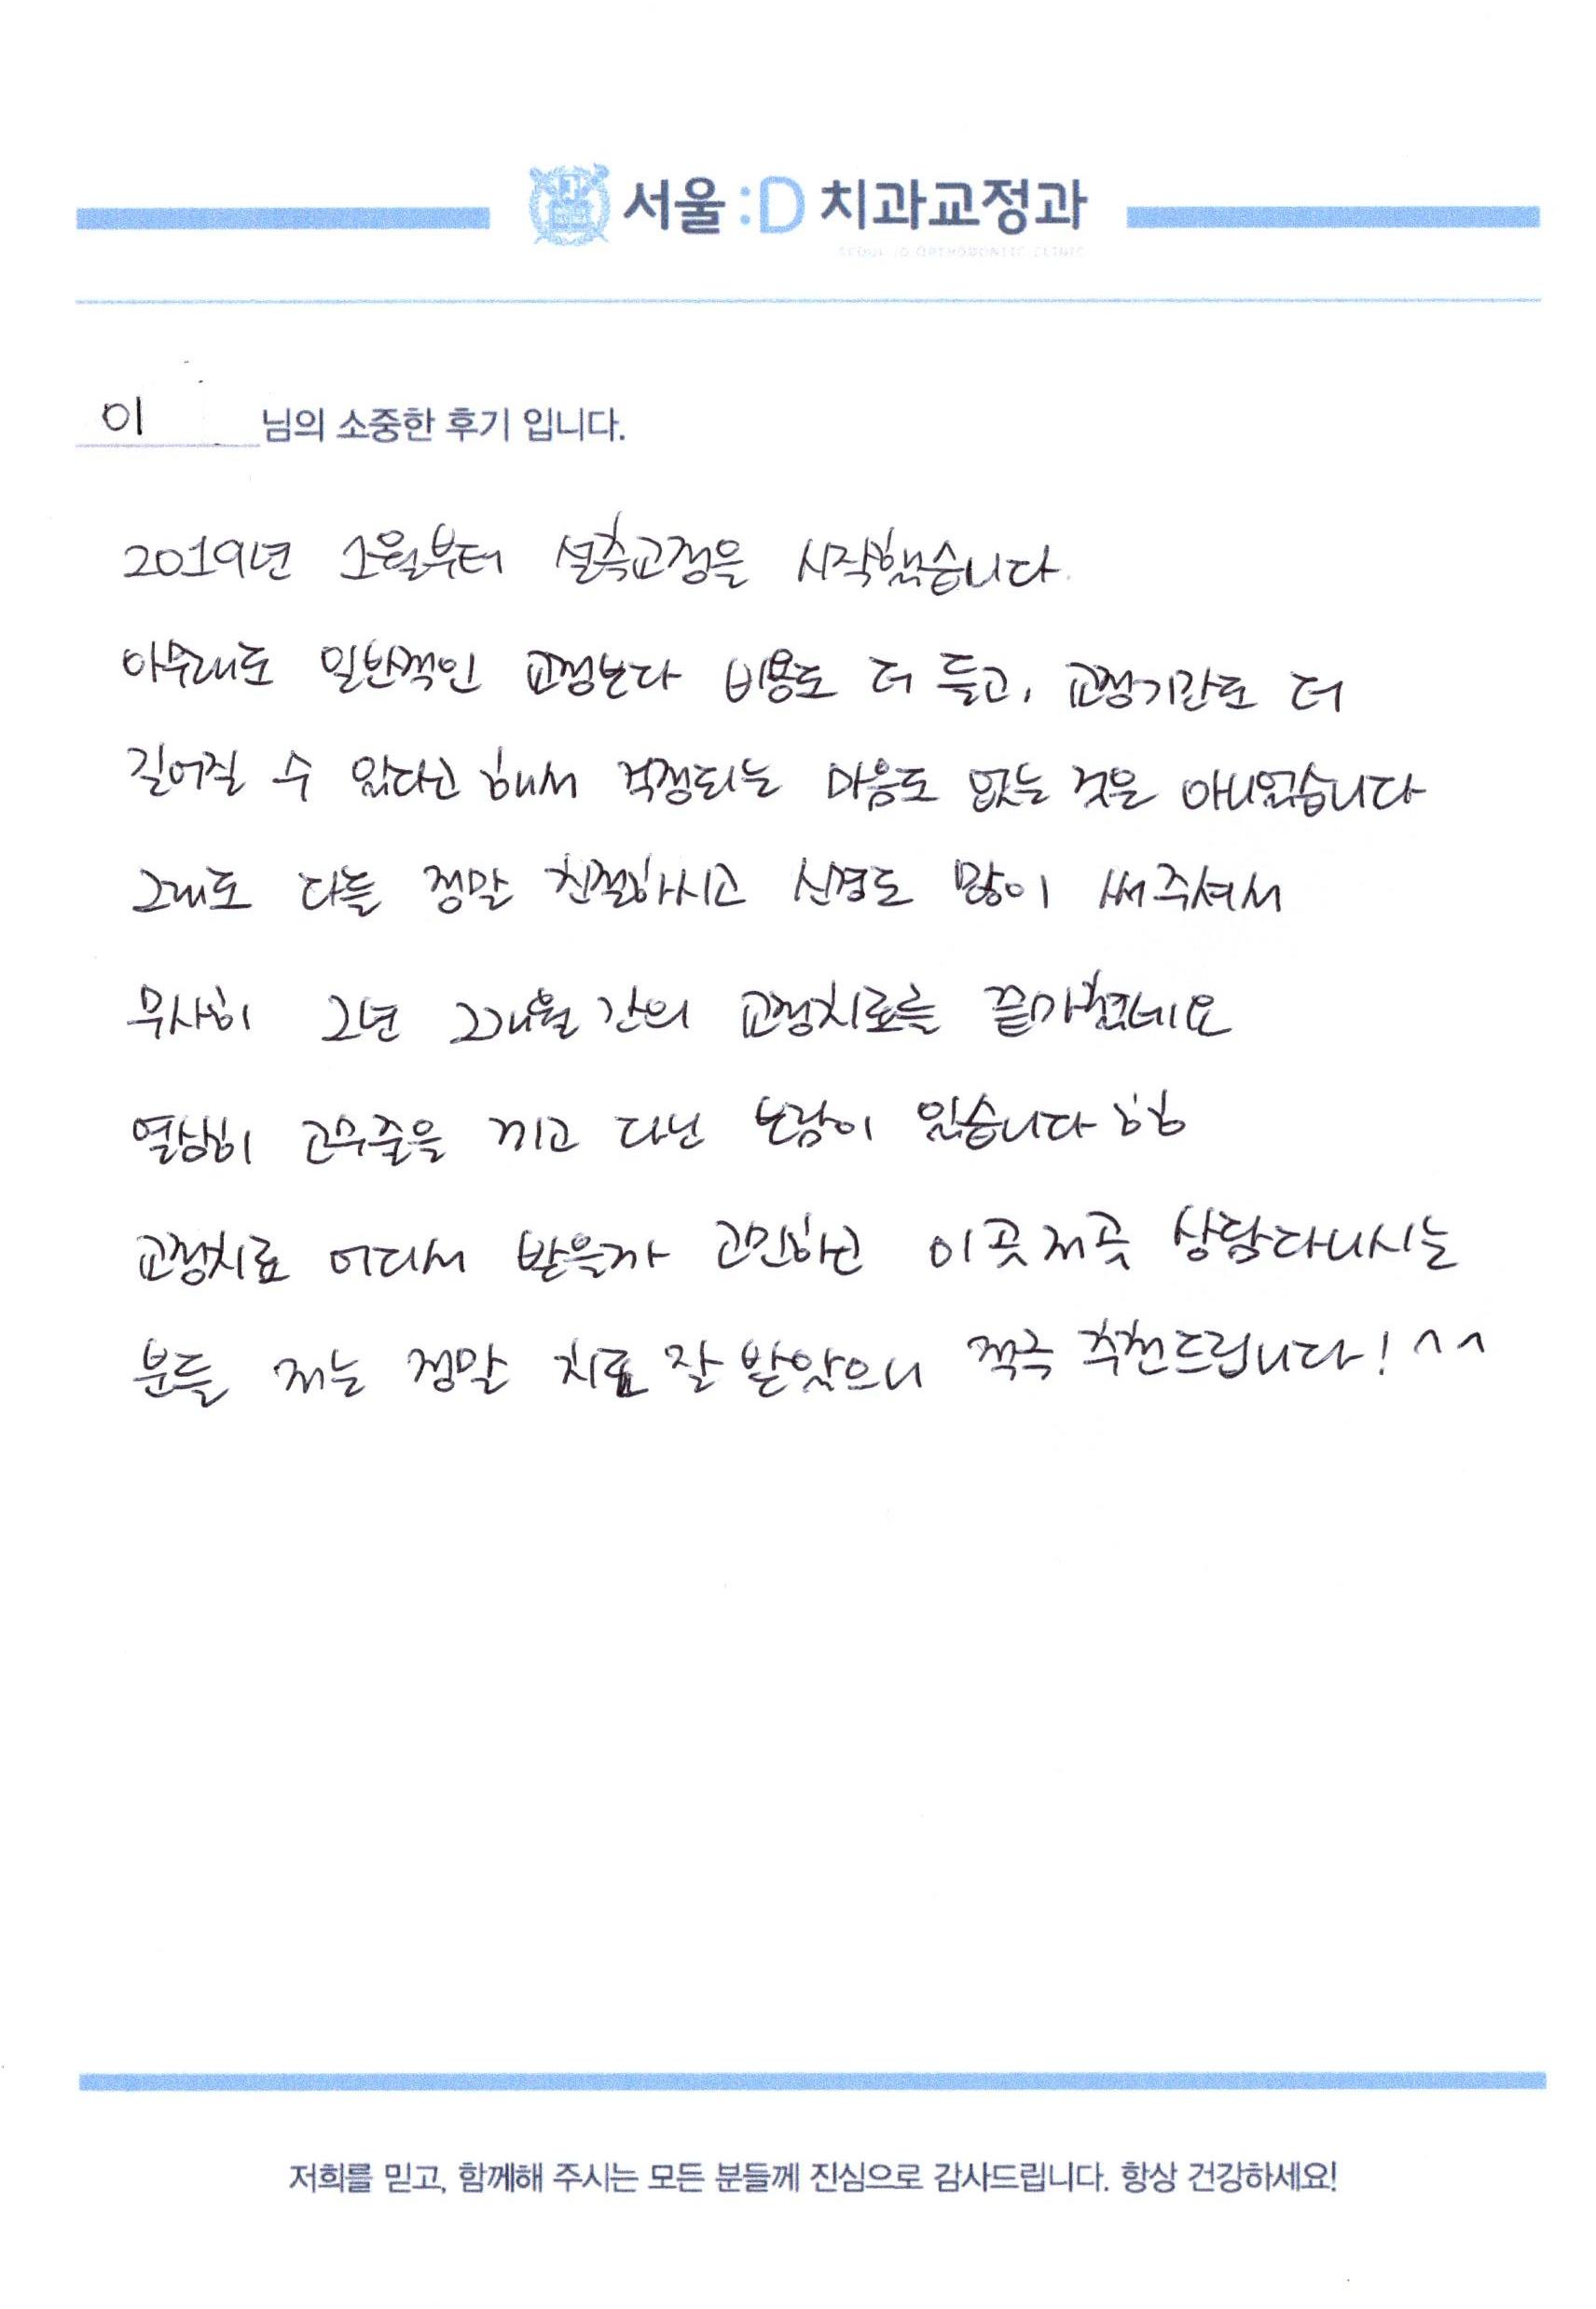 서울:D치과교정과
SEOUL :D ORTHODONTIC CLINIC
이 님의 소중한 후기 입니다.
2019년 1월부터 설측교정을 시작했습니다
아무래도 일반적인 교정보다 비용도 더 들고, 교정기간도 더
길어질 수 있다고 해서 걱정되는 마음도 없는 것은 아니었습니다
그래도 다들 정말 친절하시고 신경도 많이 써주셔서
무사히 2년 2개월 간의 교정치료를 끝마쳤네요
열심히 고무줄을 끼고 다닌 보람이 있습니다 ㅎㅎ
교정치료 어디서 받을까 고민하고 이곳저곳 상담다니시는
분들 저는 정말 치료 잘 받았으니 적극 추천드립니다! ^^
저희를 믿고, 함께해 주시는 모든 분들께 진심으로 감사드립니다. 항상 건강하세요!